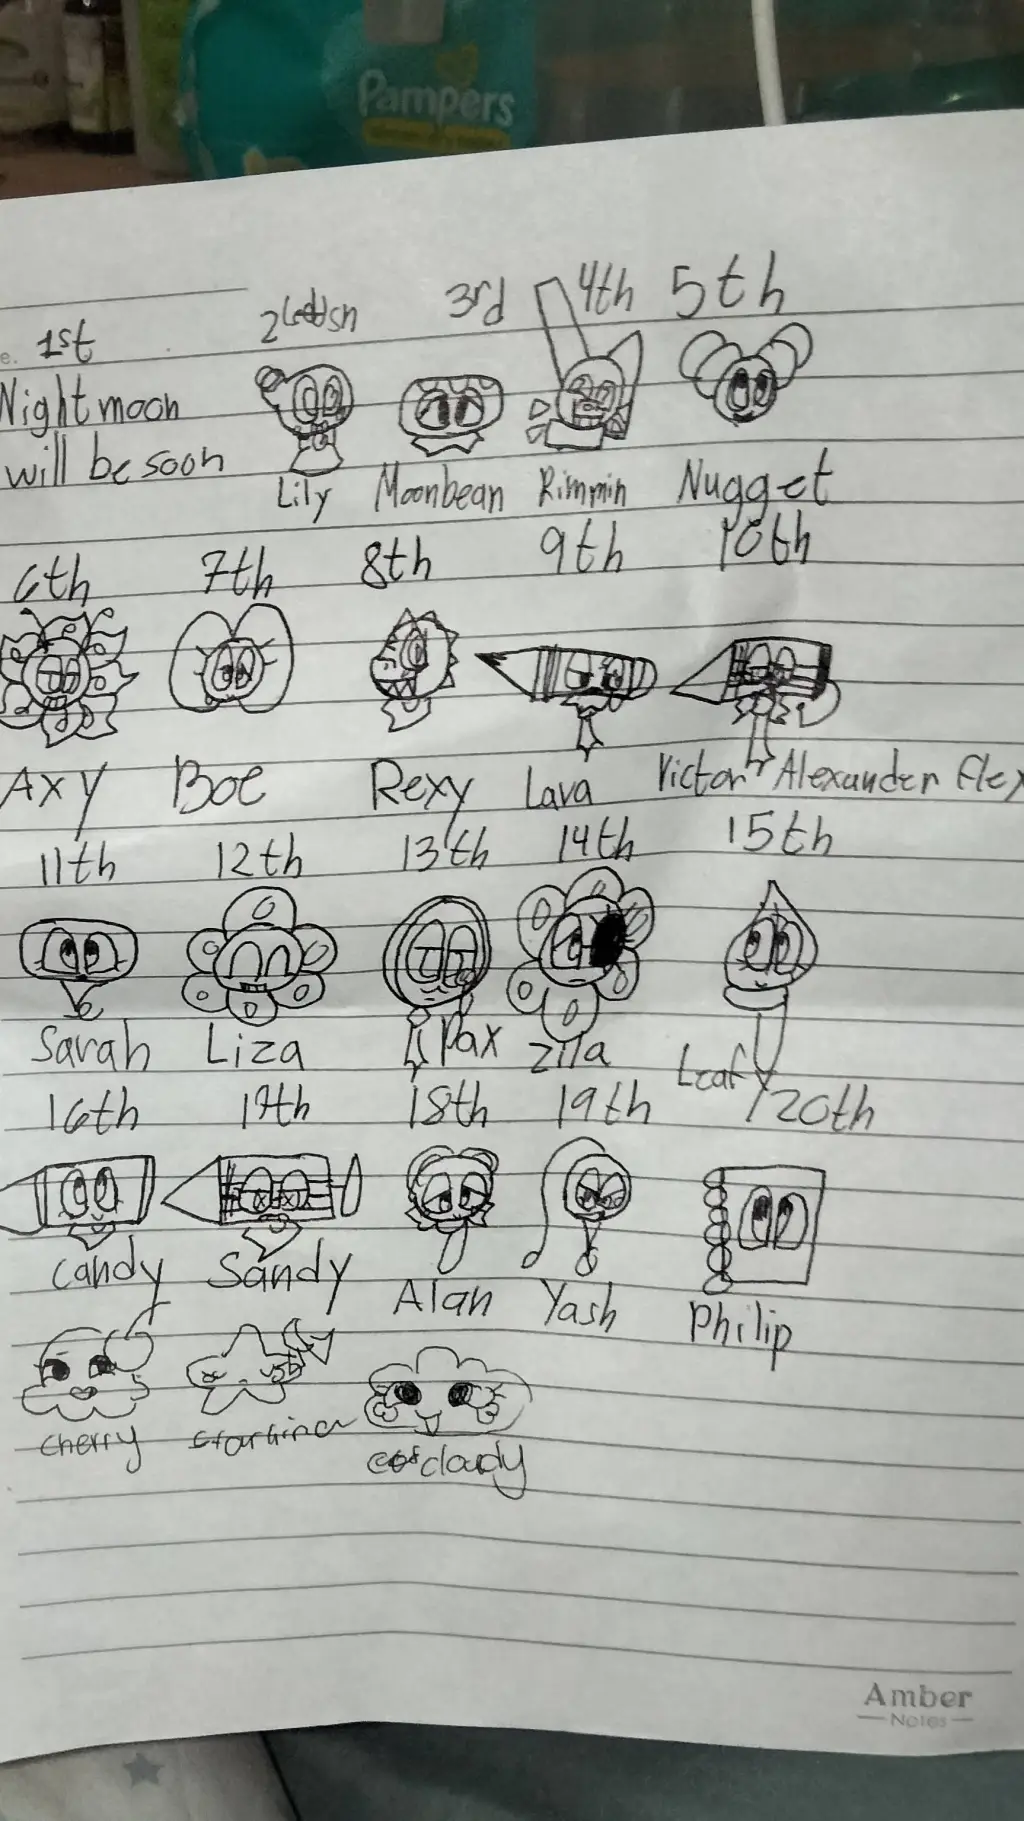 Pampers
1st 3rd 4th 5th
Night moon
will be soon
Lily Moonbean Rimmin Nugget
6th 7th 8th 9th 10th
Axy Boe Rexy Lava Victor Alexander Flex
11th 12th 13th 14th 15th
Sarah Liza Pax Zilla Leafy
16th 17th 18th 19th 20th
Candy Sandy Alan Yash Philip
cherry cloudy
Amber
Notes